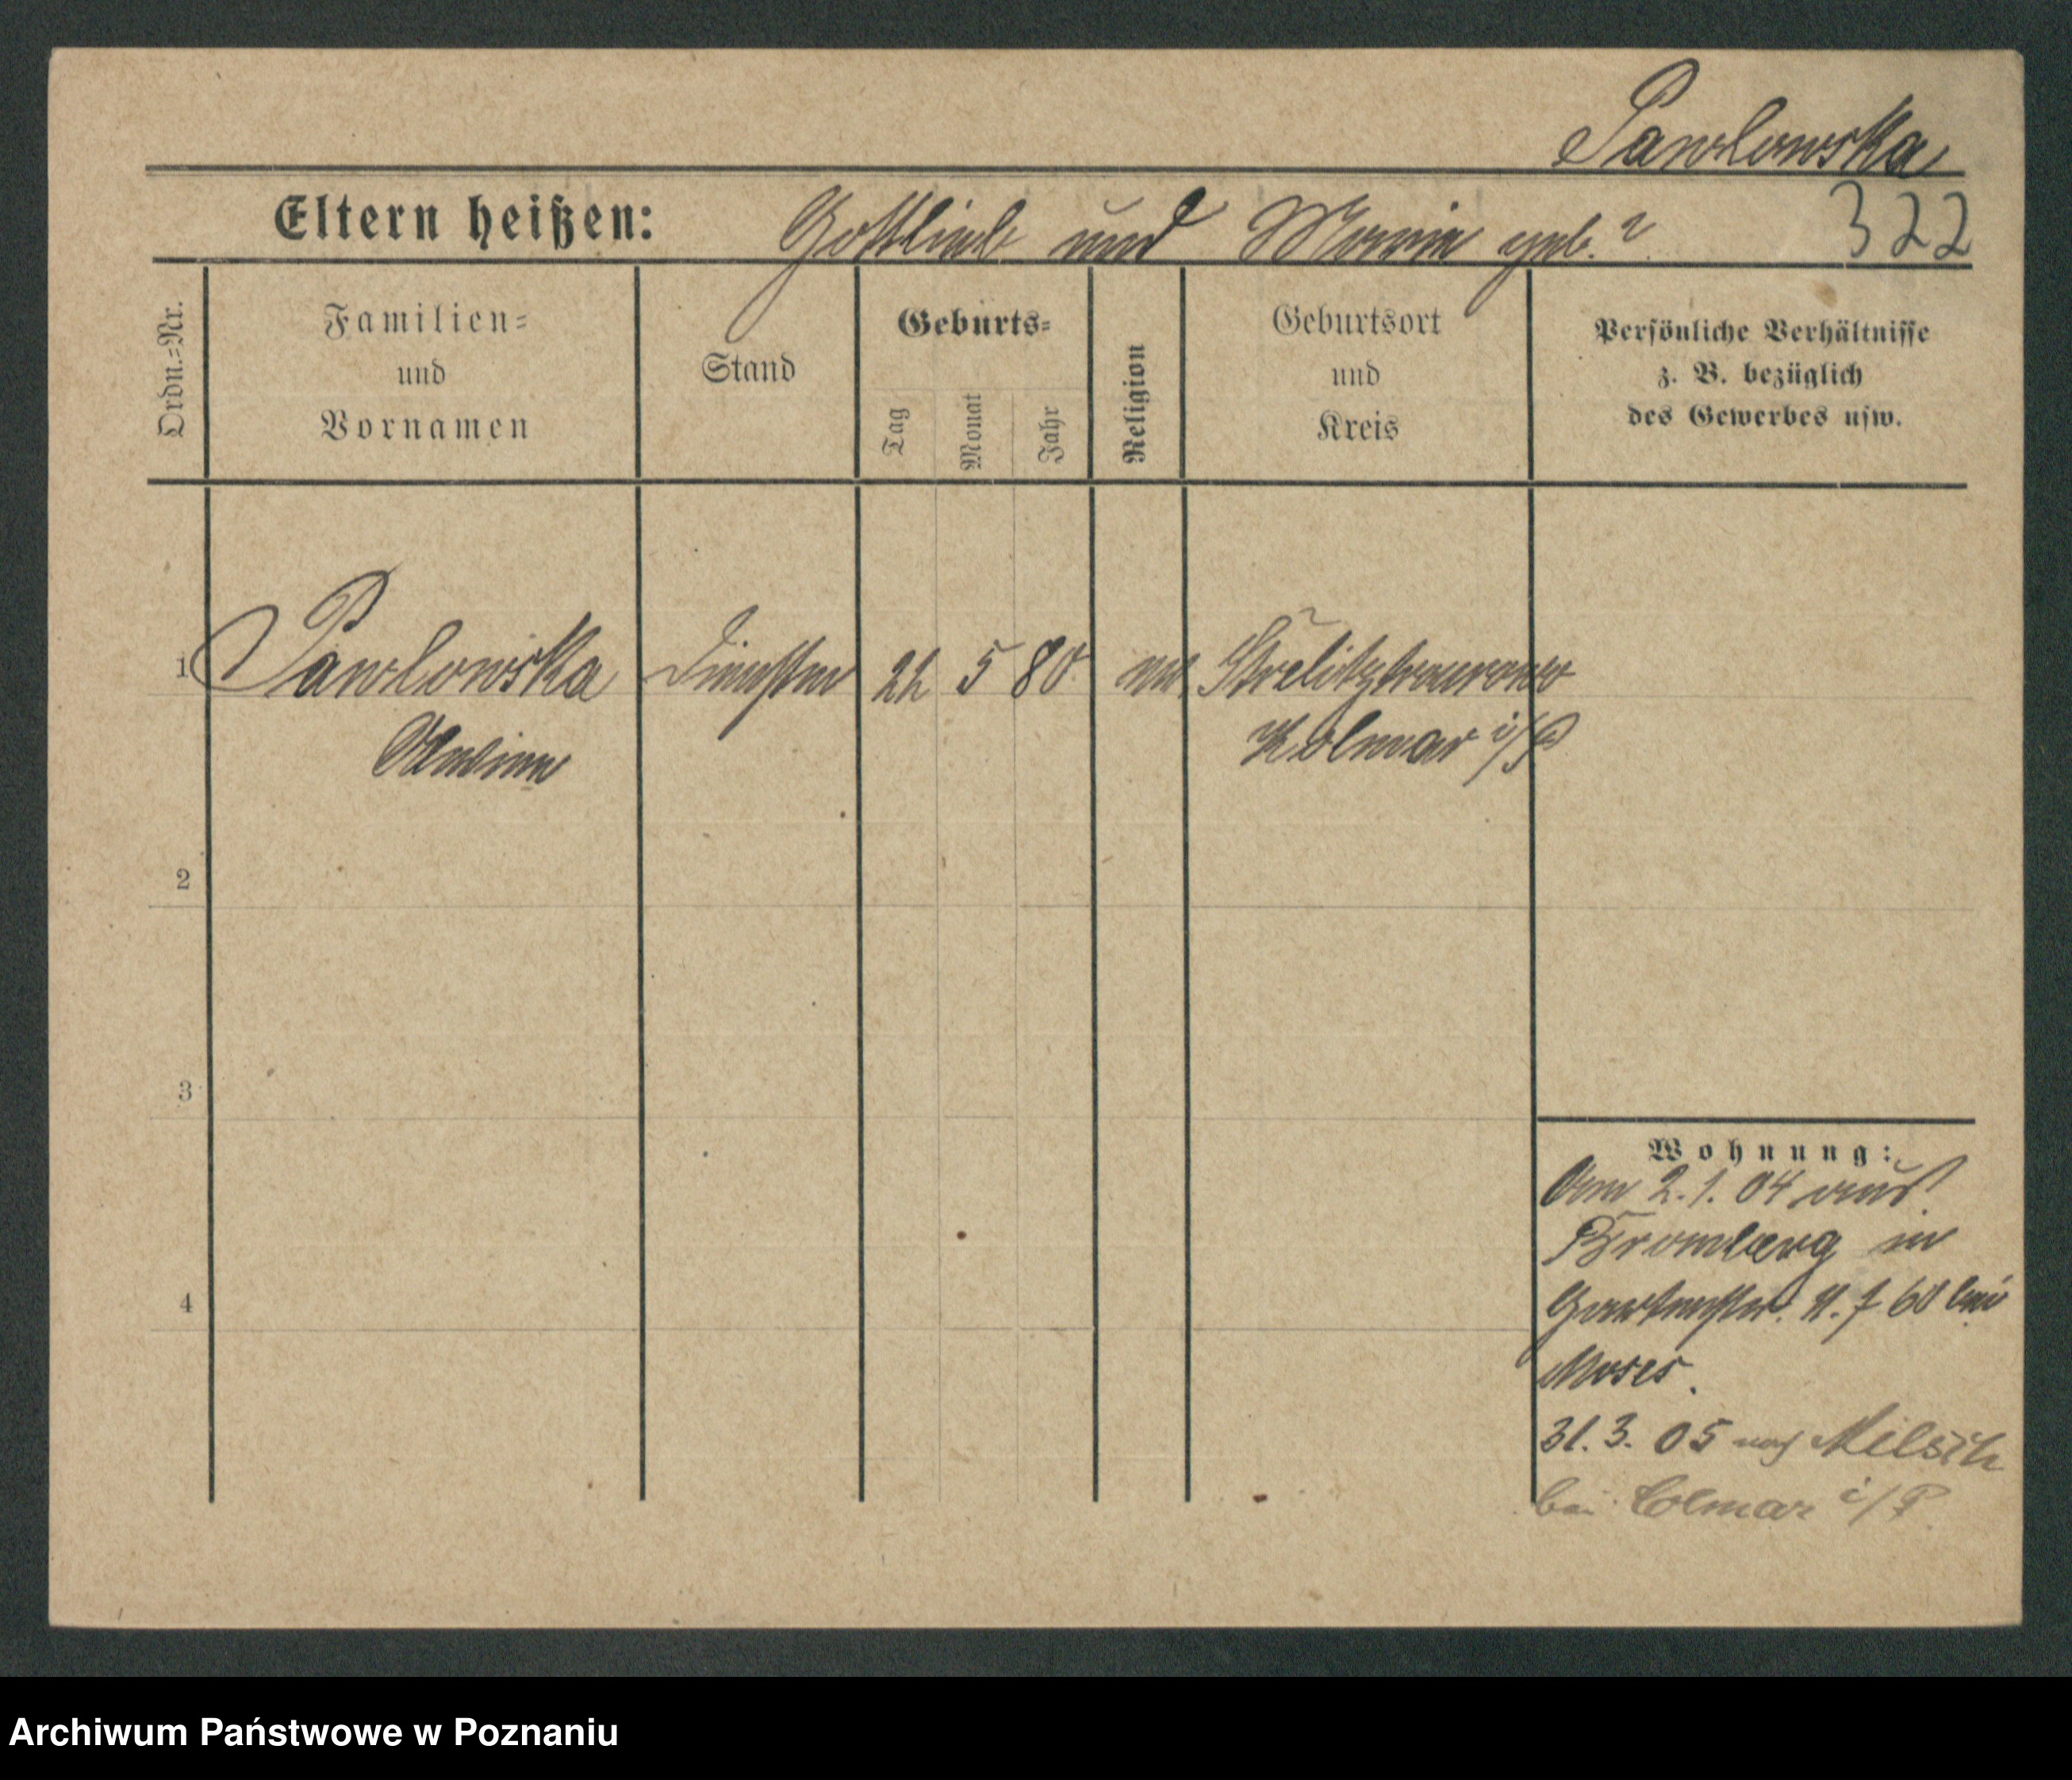 Pawlowska
Eltern heißen: Gottlieb und Maria geb. ?
322
Ordn.=Nr.
Familien=
und
Vornamen
Stand
Geburts=
Tag
Monat
Jahr
Religion
Geburtsort
und
Kreis
Persönliche Verhältnisse
z. B. bezüglich
des Gewerbes usw.
1 Pawlowska 5 80
Kolmar i/P
2
3
4
Wohnung:
Am 2. 1. 04 aus
Bromberg in
Gartenstr. 60 bei
Moses.
31. 3. 05 nach Milsch
bei Colmar i/P.
Archiwum Państwowe w Poznaniu